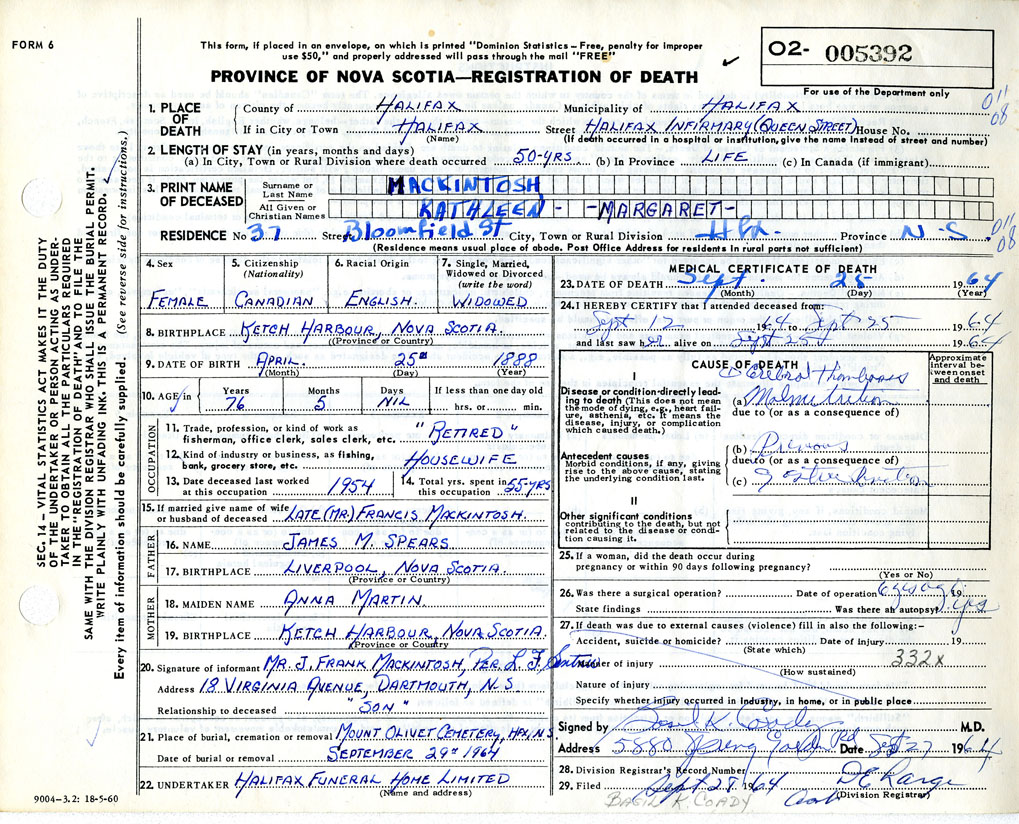 FORM 6
This form, if placed in an envelope, on which is printed "Dominion Statistics – Free, penalty for improper
use $50," and properly addressed will pass through the mail "FREE"
PROVINCE OF NOVA SCOTIA—REGISTRATION OF DEATH
O2- 005392
For use of the Department only
SEC. 14 – VITAL STATISTICS ACT MAKES IT THE DUTY
OF THE UNDERTAKER OR PERSON ACTING AS UNDER-
TAKER TO OBTAIN ALL THE PARTICULARS REQUIRED
IN THE "REGISTRATION OF DEATH" AND TO FILE THE
SAME WITH THE DIVISION REGISTRAR WHO SHALL ISSUE THE BURIAL PERMIT.
WRITE PLAINLY WITH UNFADING INK. THIS IS A PERMANENT RECORD.
Every item of information should be carefully supplied. (See reverse side for instructions.)
1. PLACE OF DEATH
County of HALIFAX Municipality of HALIFAX 011 08
If in City or Town HALIFAX Street HALIFAX INFIRMARY (QUEEN STREET) House No.
(Name) (If death occurred in a hospital or institution, give the name instead of street and number)
2. LENGTH OF STAY (in years, months and days)
(a) In City, Town or Rural Division where death occurred 50-YRS (b) In Province LIFE (c) In Canada (if immigrant)
3. PRINT NAME OF DECEASED
Surname or Last Name MACKINTOSH
All Given or Christian Names KATHLEEN - - MARGARET -
RESIDENCE No 37 Street Bloomfield St City, Town or Rural Division Hfx. Province N.S. 011 08
(Residence means usual place of abode. Post Office Address for residents in rural parts not sufficient)
4. Sex FEMALE
5. Citizenship (Nationality) CANADIAN
6. Racial Origin ENGLISH.
7. Single, Married, Widowed or Divorced (write the word) WIDOWED
8. BIRTHPLACE KETCH HARBOUR, NOVA SCOTIA.
((Province or Country)
9. DATE OF BIRTH APRIL 25th 1888
(Month) (Day) (Year)
10. AGE in Years 76 Months 5 Days NIL If less than one day old hrs. or min.
OCCUPATION
11. Trade, profession, or kind of work as fisherman, office clerk, sales clerk, etc. "RETIRED"
12. Kind of industry or business, as fishing, bank, grocery store, etc. HOUSEWIFE
13. Date deceased last worked at this occupation 1954
14. Total yrs. spent in this occupation 55-YRS
15. If married give name of wife or husband of deceased LATE (MR) FRANCIS MACKINTOSH.
FATHER
16. NAME JAMES M. SPEARS
17. BIRTHPLACE LIVERPOOL, NOVA SCOTIA.
(Province or Country)
MOTHER
18. MAIDEN NAME ANNA MARTIN.
19. BIRTHPLACE KETCH HARBOUR, NOVA SCOTIA.
(Province or Country
20. Signature of informant MR. J. FRANK MACKINTOSH, PER. L. F.
Address 18 VIRGINIA AVENUE, DARTMOUTH, N.S.
Relationship to deceased "SON"
21. Place of burial, cremation or removal MOUNT OLIVET CEMETERY, HFX, N.S
Date of burial or removal SEPTEMBER 29th 1964
22. UNDERTAKER HALIFAX FUNERAL HOME LIMITED
(Name and address)
9004–3.2: 18-5-60
MEDICAL CERTIFICATE OF DEATH
23. DATE OF DEATH Sept. 25 1964
(Month) (Day) (Year)
24. I HEREBY CERTIFY that I attended deceased from:
Sept 12 1964 to Sept 25 1964
and last saw her alive on Sept 25 1964
CAUSE OF DEATH
Approximate interval between onset and death
I
Disease or condition directly leading to death (This does not mean the mode of dying, e.g., heart failure, asthenia, etc. It means the disease, injury, or complication which caused death.)
Cerebral Thombosis
(a) Malnutrition
due to (or as a consequence of)
Antecedent causes
Morbid conditions, if any, giving rise to the above cause, stating the underlying condition last.
(b) Previous
due to (or as a consequence of)
(c)
II
Other significant conditions
contributing to the death, but not related to the disease or condition causing it.
25. If a woman, did the death occur during
pregnancy or within 90 days following pregnancy?
(Yes or No)
26. Was there a surgical operation? Date of operation 19
State findings Was there an autopsy? yes
27. If death was due to external causes (violence) fill in also the following:–
Accident, suicide or homicide? Date of injury 19
(State which) 332x
Manner of injury
(How sustained)
Nature of injury
Specify whether injury occurred in industry, in home, or in public place
Signed by Basil K. Coady M.D.
Address 5880 Spring Garden Rd Date Sept 27 1964
28. Division Registrar's Record Number
29. Filed Sept 28 1964
(Division Registrar)
BASIL K. COADY